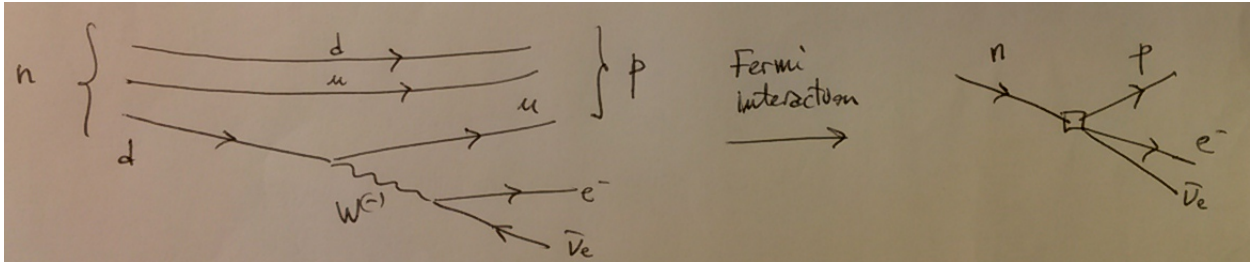 n { d } p
u
u
d
W(-)
e-
ν̄e
Fermi
interaction
n p
e-
ν̄e